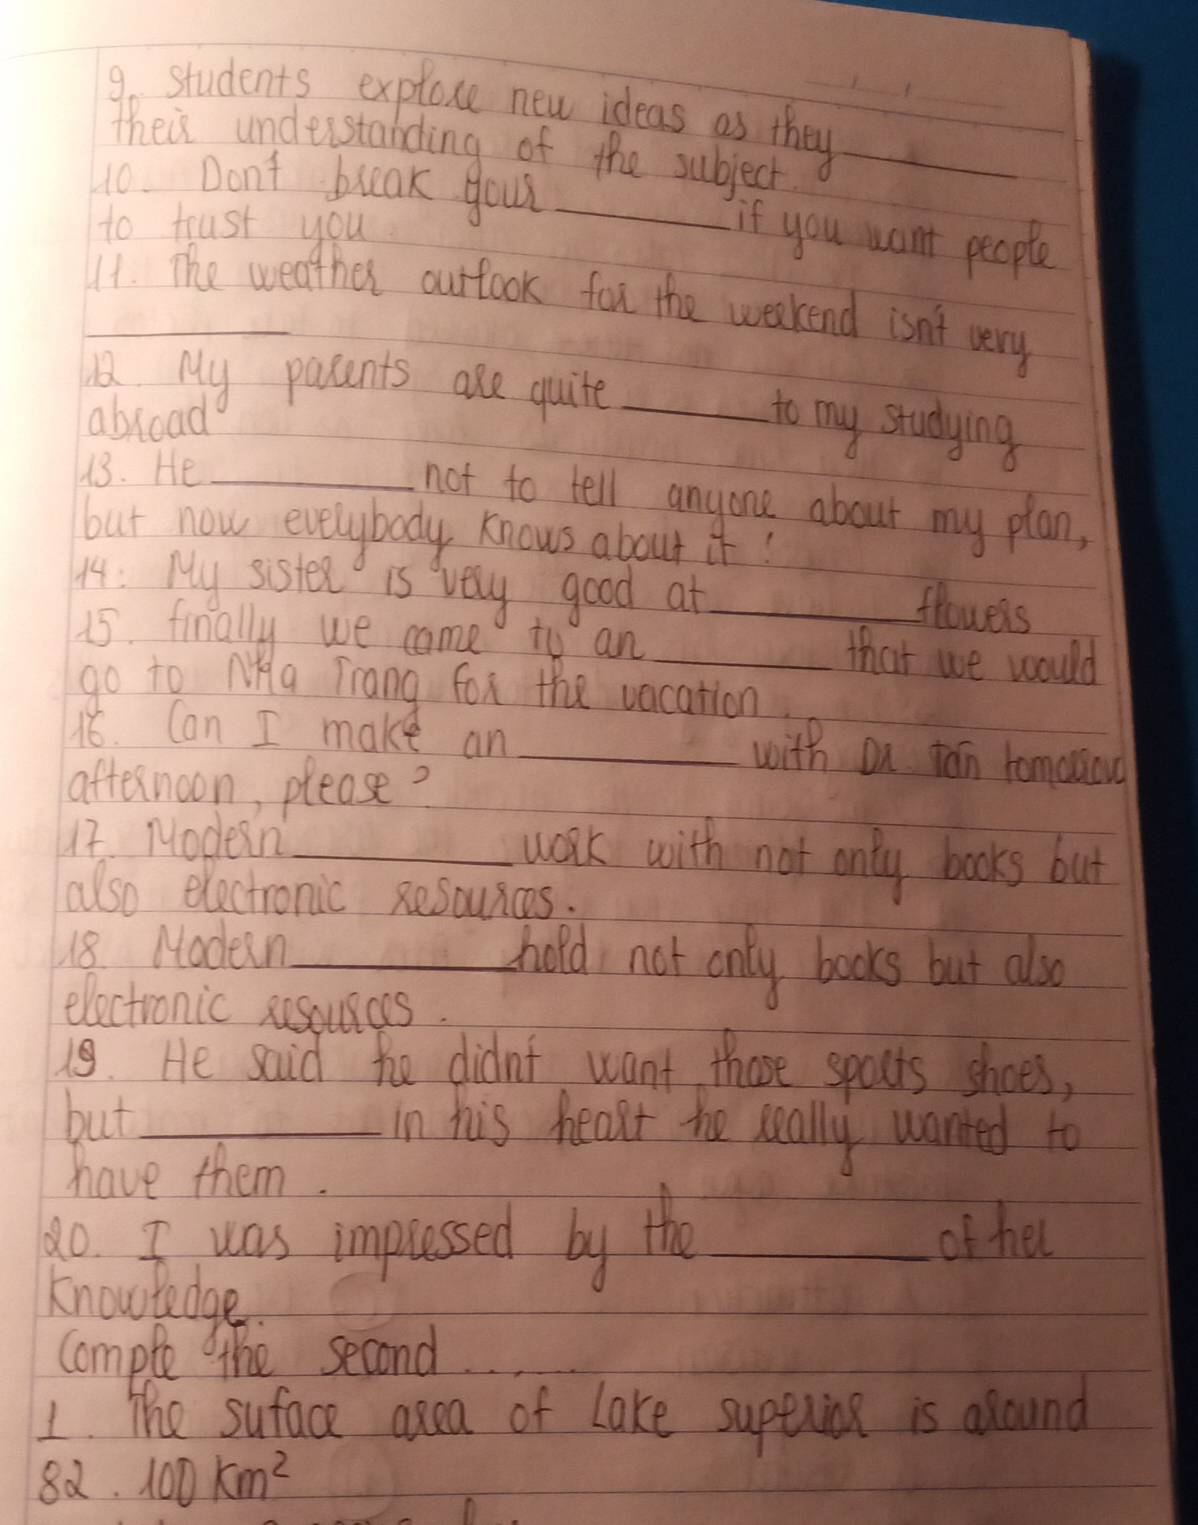 9. students explore new ideas as they ______
their understanding of the subject.
10. Don't break your ______ if you want people
to trust you
11. The weather outlook for the weekend isn't very
______
12. My parents are quite ______ to my studying
abroad
13. He ______ not to tell anyone about my plan,
but now everybody knows about it!
14. My sister is very good at ______ flowers
15. finally we came to an ______ that we would
go to Nha Trang for the vacation.
16. Can I make an ______ with Dr tan tomorrow
afternoon, please?
17. Modern ______ work with not only books but
also electronic resources.
18. Modern ______ hold not only books but also
electronic resources.
19. He said he didn't want those sports shoes,
but ______ in his heart he really wanted to
have them.
20. I was impressed by the ______ of her
knowledge.
Comple the second .....
1. The suface area of Lake superior is around
82.100 km²